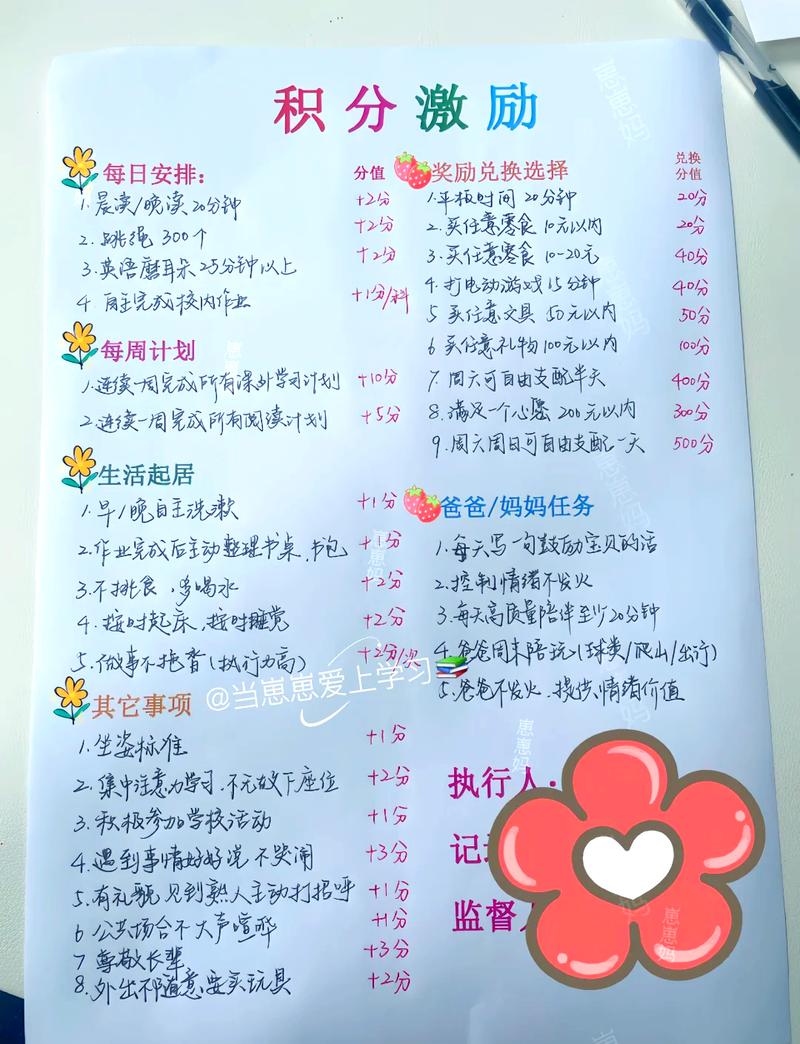 积分激励
每日安排： 分值
1.晨读/晚读 20分钟 +2分
2.跳绳 300个 +2分
3.英语磨耳朵25分钟以上 +2分
4 自主完成校内作业 +1分/科
每周计划
1.连续一周完成所有课外学习计划 +10分
2.连续一周完成所有阅读计划 +5分
生活起居
1.早/晚自主洗漱 +1分
2.作业完成后主动整理书桌、书包 +1分
3.不挑食，多喝水 +2分
4.按时起床、按时睡觉 +2分
5.做事不拖沓(执行力高) +2分/次
其它事项
1.坐姿标准 +1分
2.集中注意力学习.不无故下座位 +2分
3.积极参加学校活动 +1分
4.遇到事情好好说 不哭闹 +3分
5.有礼貌 见到熟人主动打招呼 +1分
6 公共场合不大声喧哗 +1分
7 尊敬长辈 +3分
8.外出不随意要买玩具 +2分
奖励兑换选择 兑换分值
1.平板时间 20分钟 20分
2.买任意零食 10元以内 20分
3.买任意零食 10-20元 40分
4.打电动游戏15分钟 40分
5 买任意文具 50元以内 50分
6 买任意礼物100元以内 100分
7.周六可自由支配半天 400分
8.满足一个心愿 200元以内 300分
9.周六周日可自由支配一天 500分
爸爸/妈妈任务
1.每天写一句鼓励宝贝的话
2.控制情绪不发火
3.每天高质量陪伴至少20分钟
4.爸爸周末陪玩(球类/爬山/出行)
5.爸爸不发火、提供情绪价值
执行人：
记
监督人
@当崽崽爱上学习
崽崽妈
崽崽妈
崽崽妈
崽崽妈
崽崽妈
崽崽妈